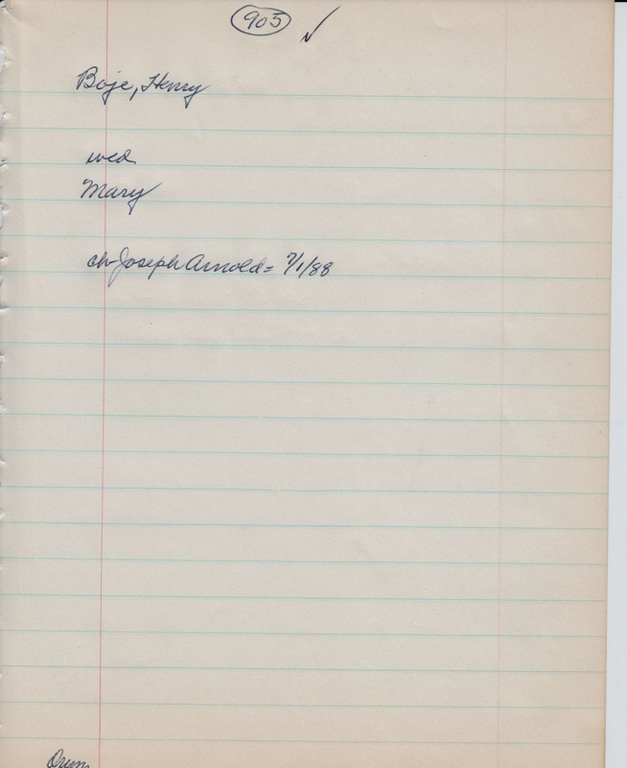 903
Boje, Henry
wed
Mary
ch-Joseph Arnold = 7/1/88